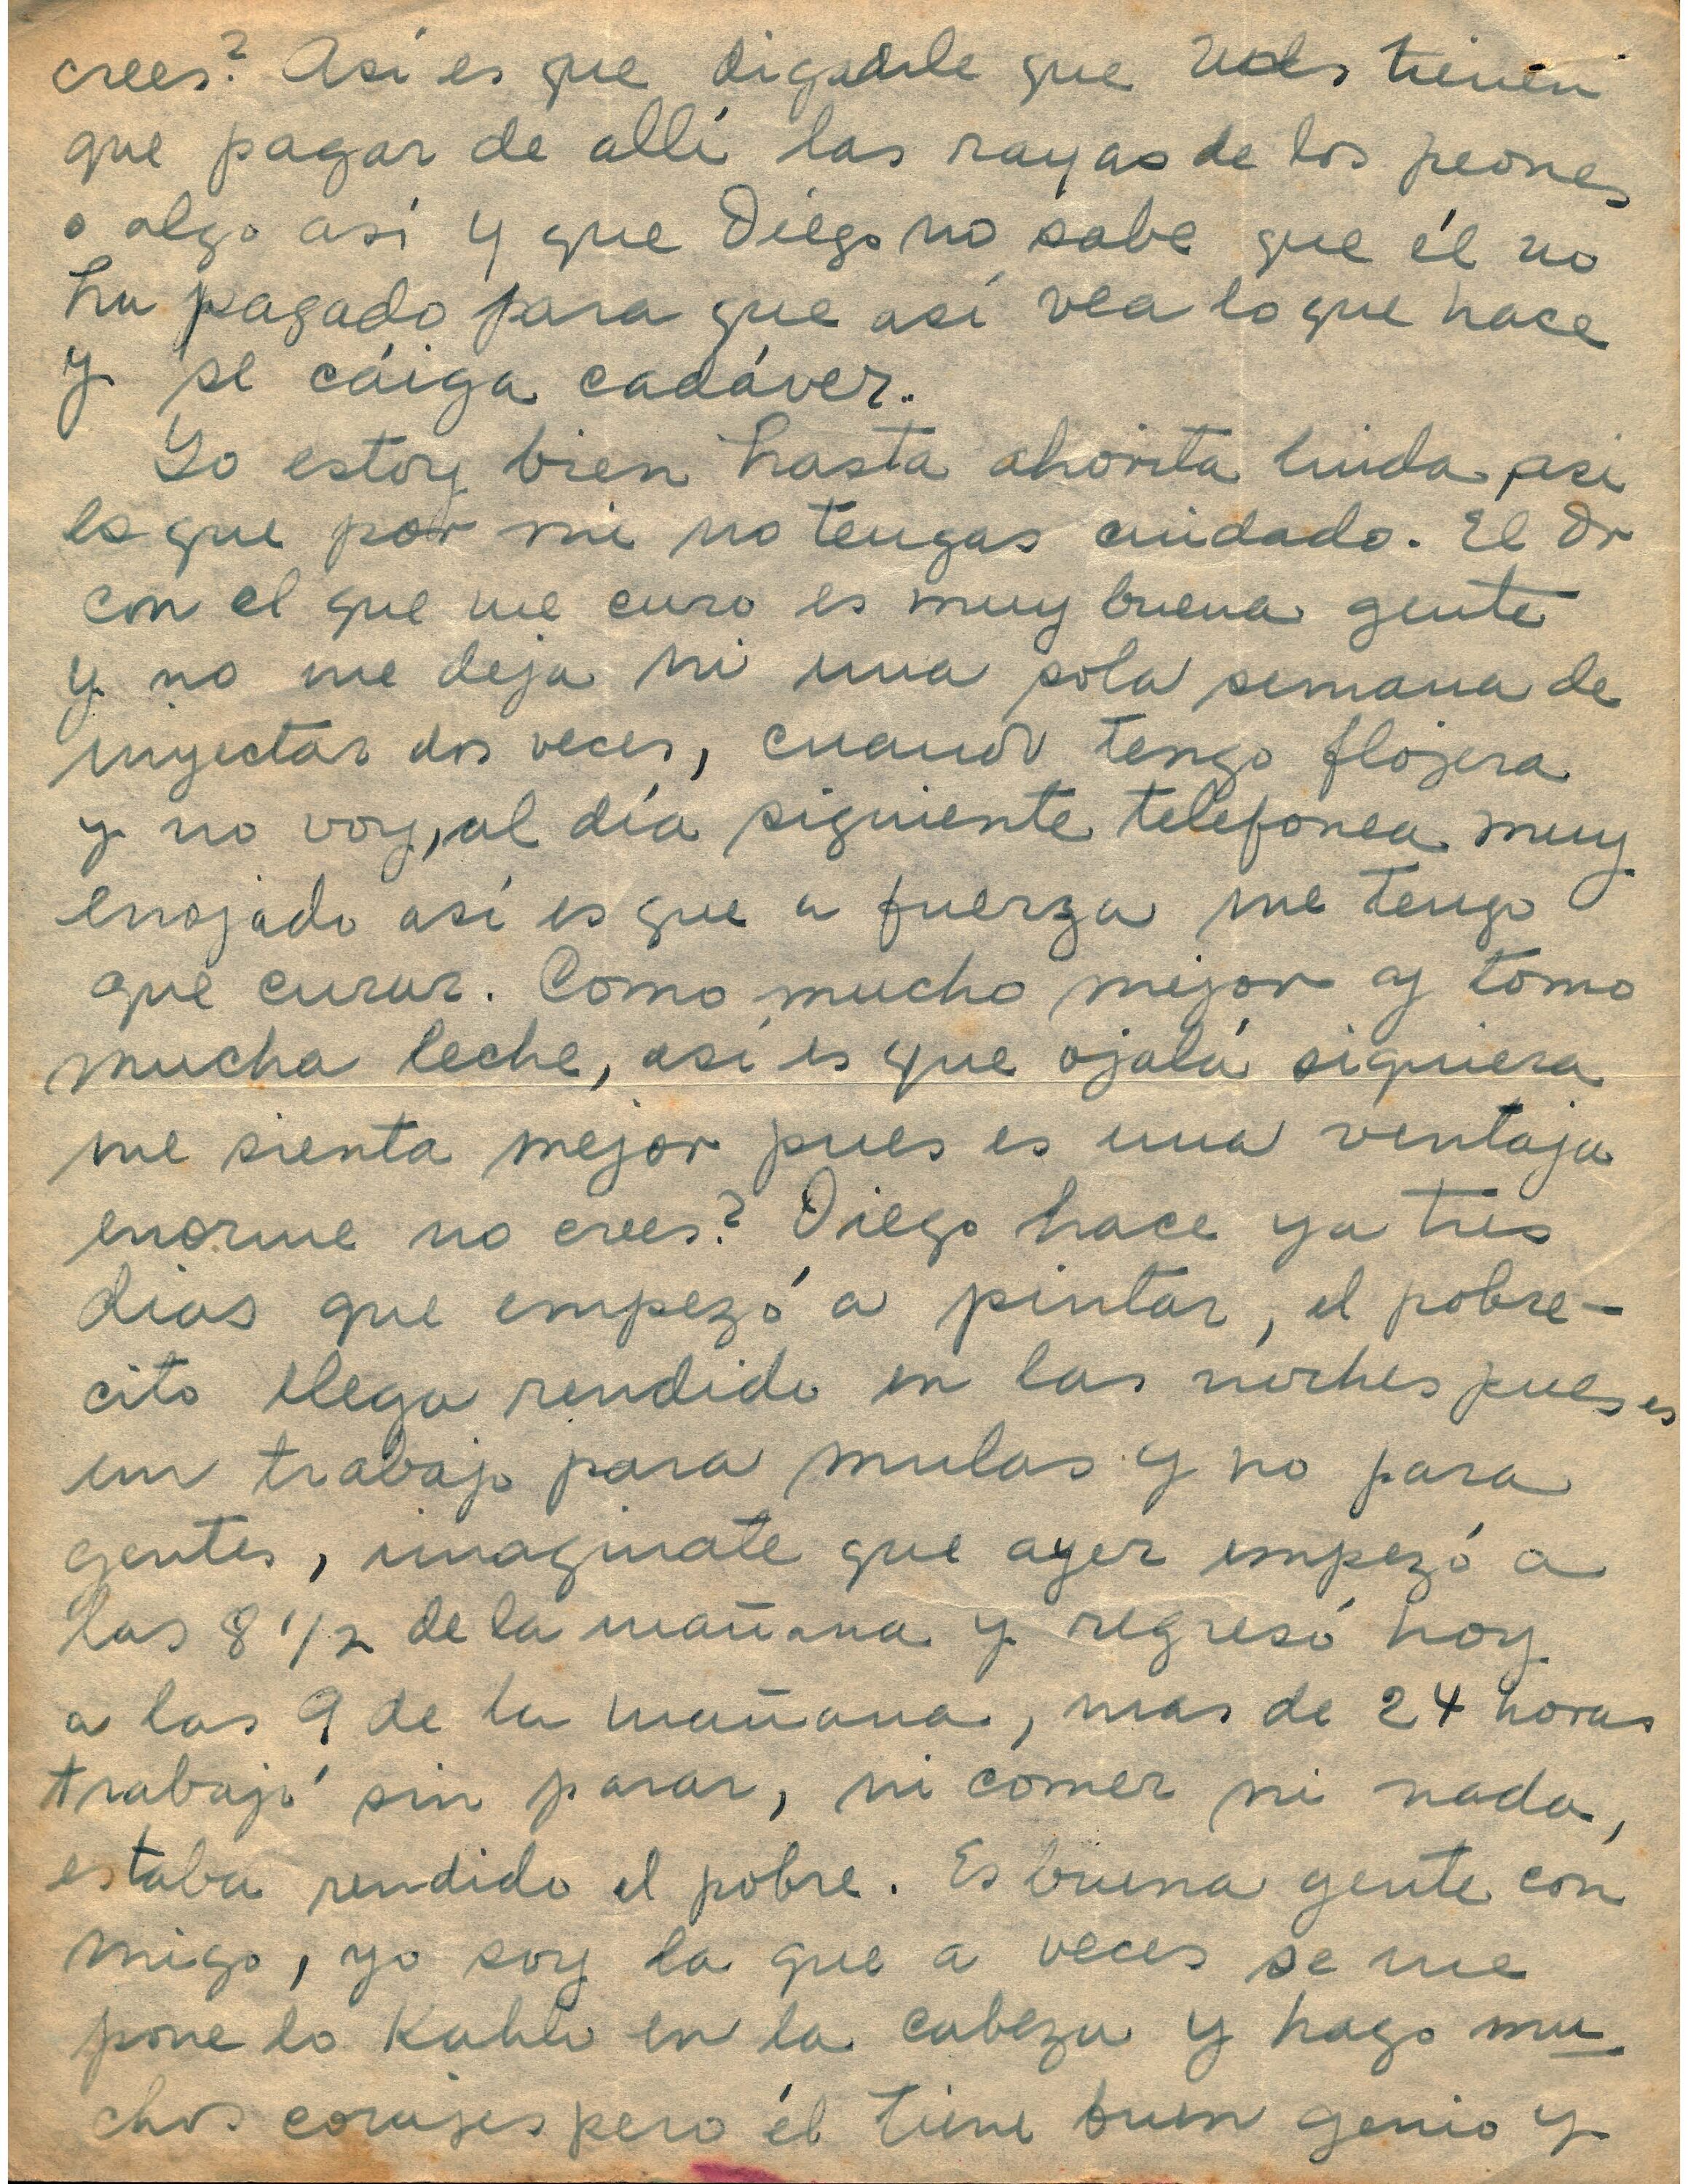 crees? Así es que diganle que Uds tienen
que pagar de allí las rayas de los peones
o algo así y que Diego no sabe que él no
ha pagado para que así vea lo que hace
y se cáiga cadáver.
Yo estoy bien hasta ahorita linda, asi
es que por mi no tengas cuidado. El Dr
con el que me curo es muy buena gente
y no me deja ni una sola semana de
inyectar dos veces, cuando tengo flojera
y no voy, al día siguiente telefonea muy
enojado así es que a fuerza me tengo
que curar. Como mucho mejor y tomo
mucha leche, así es que ojalá siquiera
me sienta mejor pues es una ventaja
enorme no crees? Diego hace ya tres
dias que empezó a pintar, el pobre-
cito llega rendido en las noches pues es
un trabajo para mulas y no para
gentes, imaginate que ayer empezó a
las 8 1/2 de la mañana y regresó hoy
a las 9 de la mañana, mas de 24 horas
trabajó sin parar, ni comer ni nada,
estaba rendido el pobre. Es buena gente con
migo, yo soy la que a veces se me
pone lo Kahlo en la cabeza y hago mu
chos corajes pero él tiene buen genio y